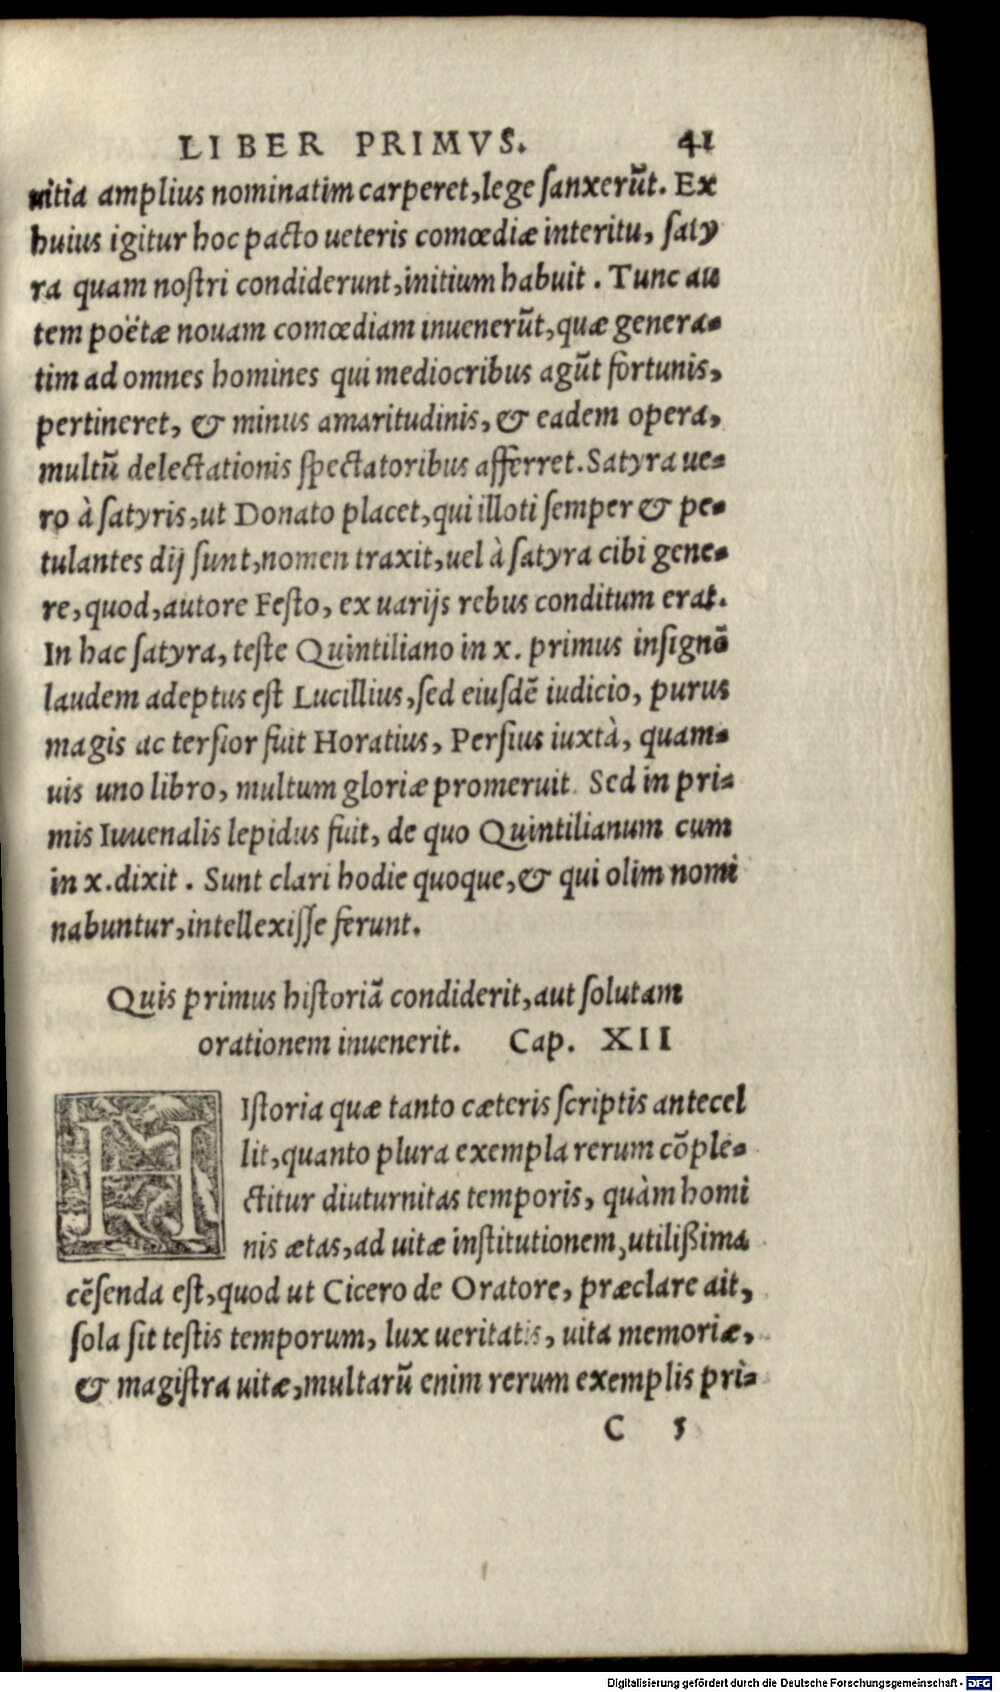 LIBER PRIMVS. 41
uitia amplius nominatim carperet, lege ſanxerũt. Ex
huius igitur hoc pacto ueteris comœdiæ interitu, ſaty
ra quam noſtri condiderunt, initium habuit. Tunc au
tem poëtæ nouam comœdiam inuenerũt, quæ genera-
tim ad omnes homines qui mediocribus agũt fortunis,
pertineret, & minus amaritudinis, & eadem opera,
multũ delectationis ſpectatoribus afferret. Satyra ue-
ro à ſatyris, ut Donato placet, qui illoti ſemper & pe-
tulantes dij ſunt, nomen traxit, uel à ſatyra cibi gene-
re, quod, autore Feſto, ex uarijs rebus conditum erat.
In hac ſatyra, teſte Quintiliano in x. primus inſignẽ
laudem adeptus eſt Lucillius, ſed eiuſdẽ iudicio, purus
magis ac terſior fuit Horatius, Perſius iuxtà, quam-
uis uno libro, multum gloriæ promeruit. Sed in pri-
mis Iuuenalis lepidus fuit, de quo Quintilianum cum
in x. dixit. Sunt clari hodie quoque, & qui olim nomi
nabuntur, intellexiſſe ferunt.
Quis primus hiſtoriã condiderit, aut ſolutam
orationem inuenerit. Cap. XII
HIſtoria quæ tanto cæteris ſcriptis antecel
lit, quanto plura exempla rerum cõple-
ctitur diuturnitas temporis, quàm homi
nis ætas, ad uitæ inſtitutionem, utilißima
cẽſenda eſt, quod ut Cicero de Oratore, præclare ait,
ſola ſit teſtis temporum, lux ueritatis, uita memoriæ,
& magiſtra uitæ, multarũ enim rerum exemplis pri-
C 5
Digitalisierung gefördert durch die Deutsche Forschungsgemeinschaft - DFG